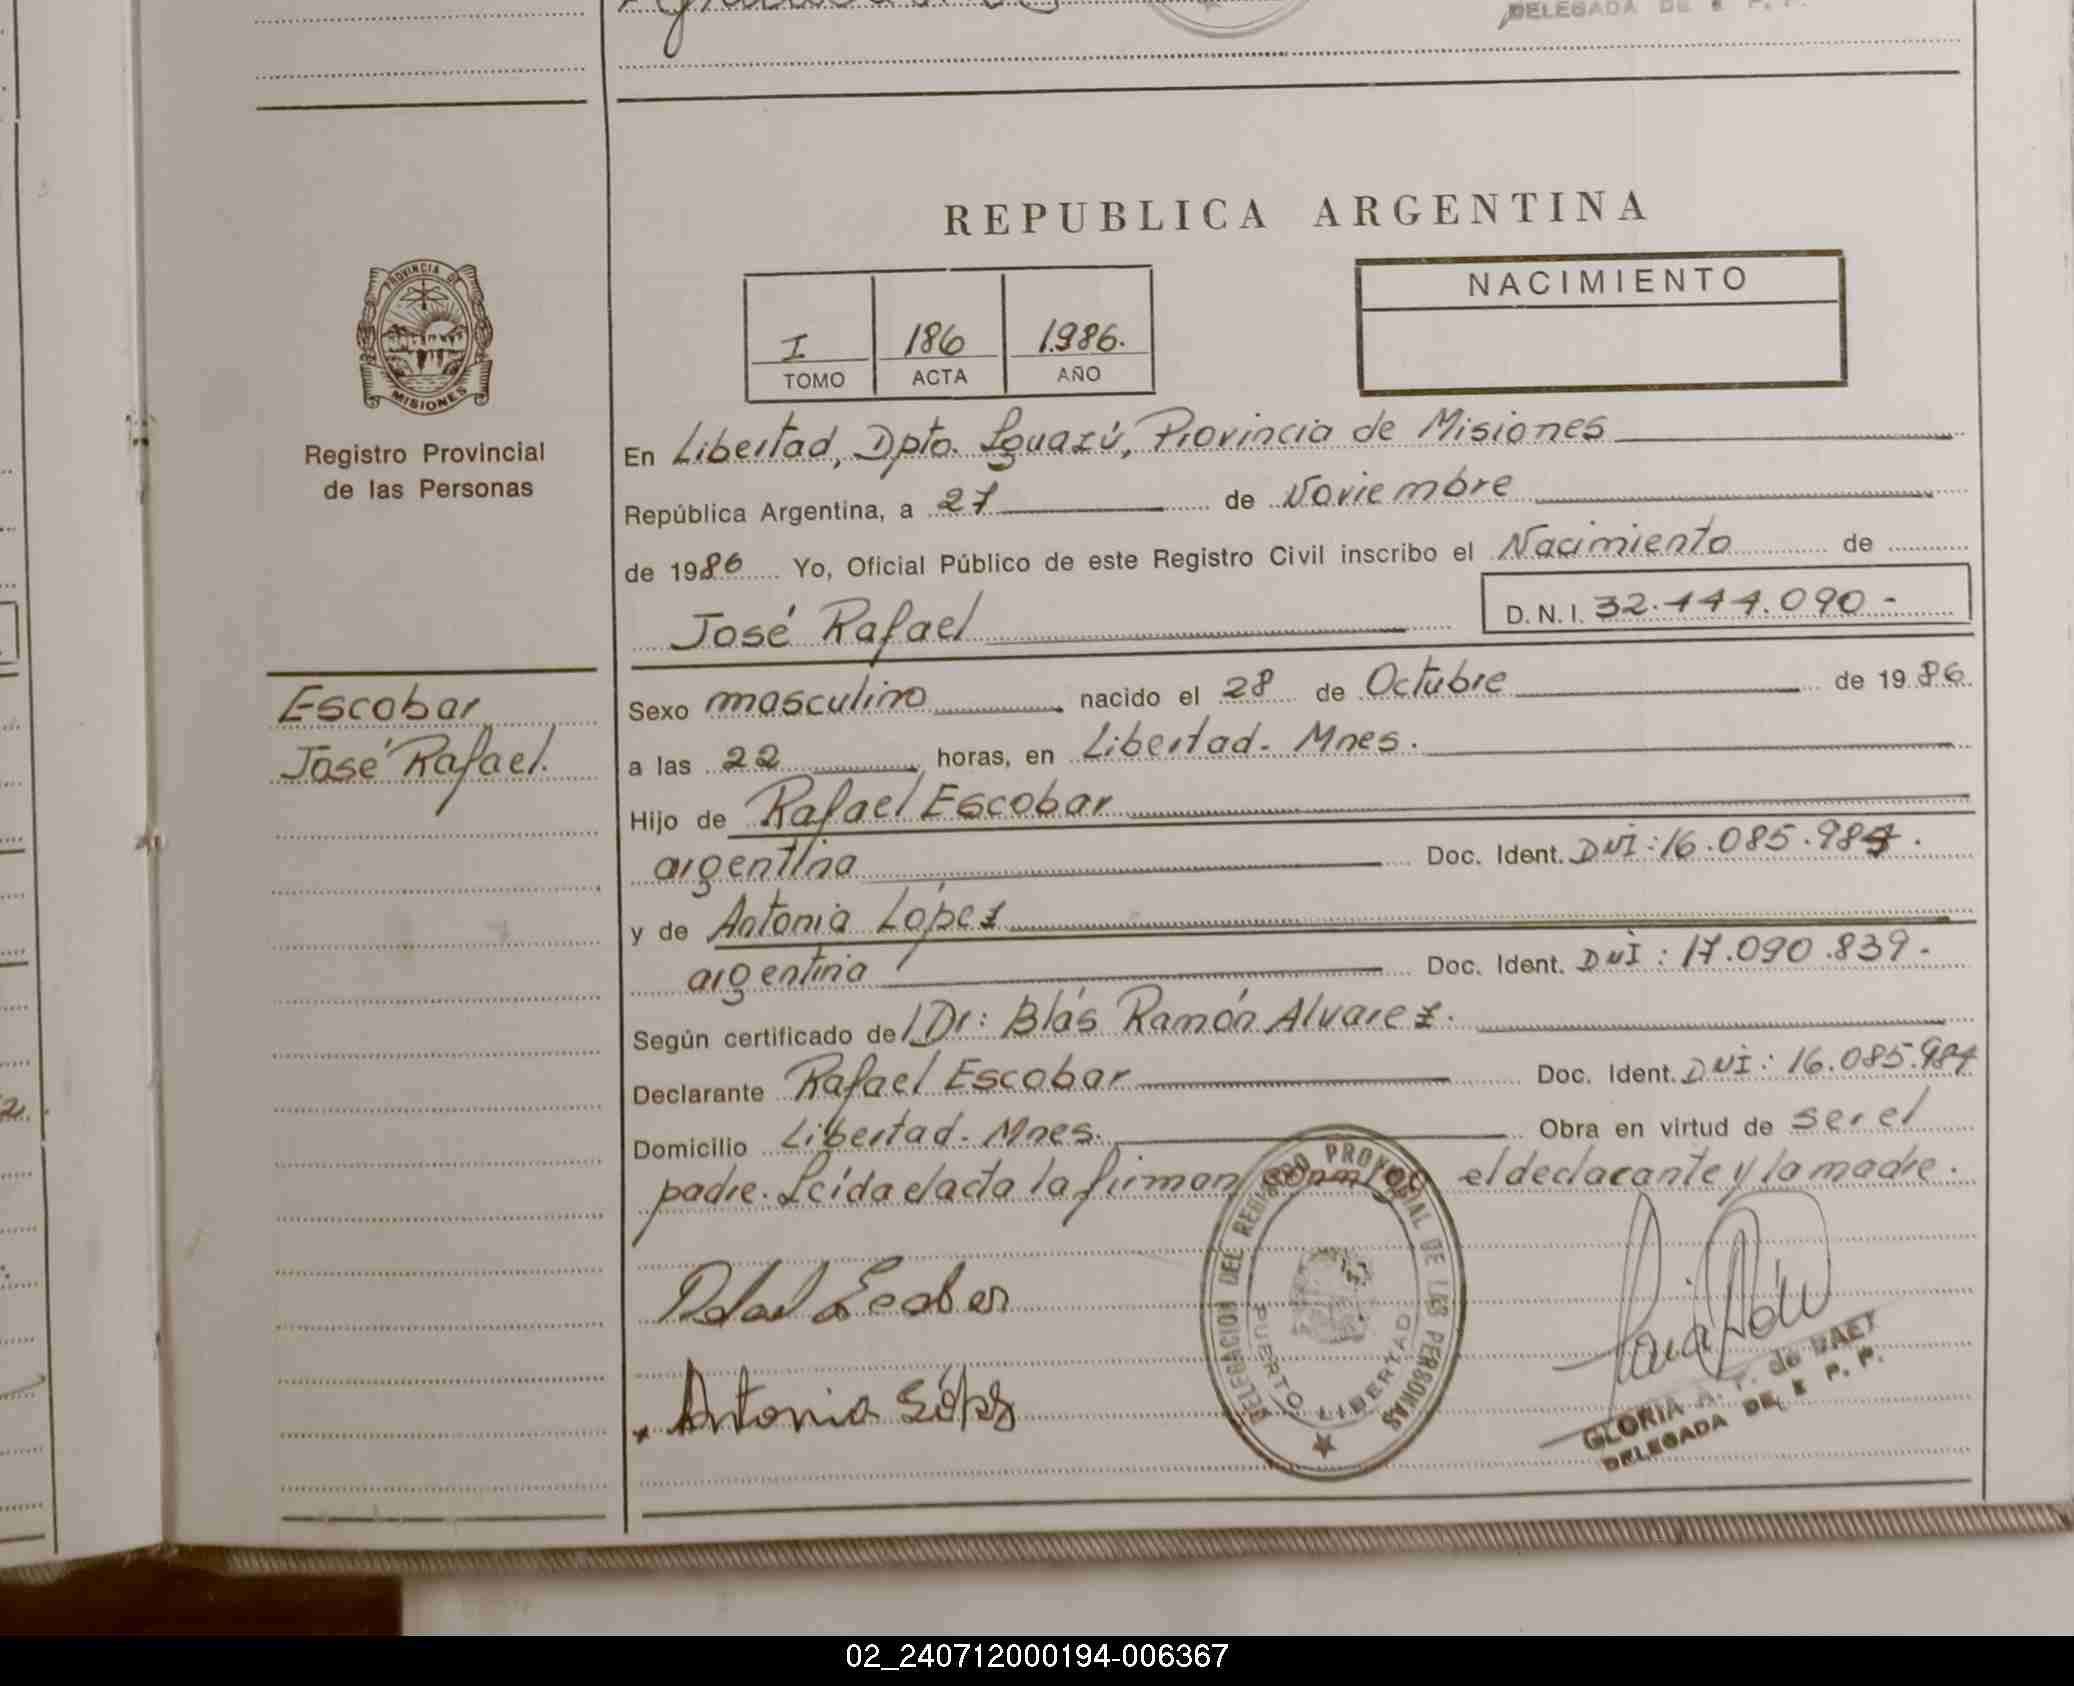 DELEGADA DE E P. P.
REPUBLICA ARGENTINA
PROVINCIA DE
MISIONES
Registro Provincial
de las Personas
I 186 1.986.
TOMO ACTA AÑO
NACIMIENTO
En Libertad, Dpto. Iguazú, Provincia de Misiones
República Argentina, a 27 de Noviembre
de 1986 Yo, Oficial Público de este Registro Civil inscribo el Nacimiento de
José Rafael
D. N. I. 32.444.090-
Escobar
José Rafael.
Sexo masculino nacido el 28 de Octubre de 1986.
a las 22 horas, en Libertad - Mnes.
Hijo de Rafael Escobar
argentina Doc. Ident. DNI: 16.085.984.
y de Antonia López
argentina Doc. Ident. DNI: 17.090.839.
Según certificado de Dr: Blás Ramón Alvarez.
Declarante Rafael Escobar Doc. Ident. DNI: 16.085.984
Domicilio Libertad - Mnes. Obra en virtud de ser el
padre. Leída el acta la firman el declarante y la madre.
Rafael Escobar
Antonia López
DELEGACION DEL REGISTRO PROVINCIAL DE LAS PERSONAS
PUERTO LIBERTAD
GLORIA de
DELEGADA DE E P. P.
02_240712000194-006367